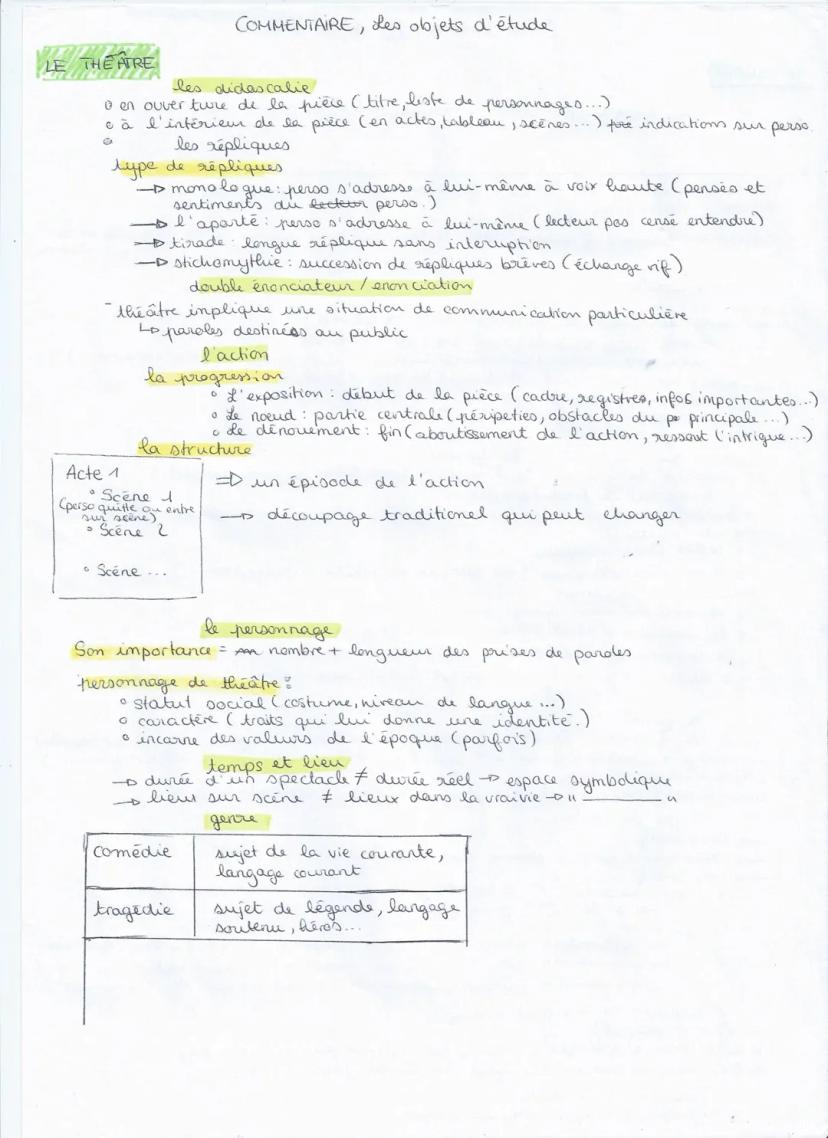 COMMENTAIRE, les objets d'étude
LE THÉÂTRE
les didascalie
en ouverture de la pièce (titre, liste de personnages...)
à l'intérieur de la pièce (en actes, tableau, scènes...) indications sur perso
les répliques
type de répliques
→ monologue: perso s'adresse à lui-même à voix haute (pensées et
sentiments du lecteur perso.)
→ l'aparté: perso s'adresse à lui-même (lecteur pas censé entendre)
→ tirade: longue réplique sans interuption
→ stichomythie: succession de répliques brèves (échange vif)
double énonciateur / enonciation
- théâtre implique une situation de communication particulière
↳ paroles destinées au public
l'action
la progression
° L'exposition: début de la pièce (cadre, registres, infos importantes...)
° Le noeud: partie centrale (péripeties, obstacles du principale...)
° Le dénouement: fin (aboutissement de l'action, ressout l'intrigue...)
la structure
Acte 1
° Scène 1
(perso quitte ou entre
sur scène)
° Scène 2
° Scène ...
⇒ un épisode de l'action
→ découpage traditionel qui peut changer
le personnage
Son importance = nombre + longueur des prises de paroles
personnage de théâtre:
° statut social (costume, niveau de langue ...)
° caractère (traits qui lui donne une identité.)
° incarne des valeurs de l'époque (parfois)
temps et lieu
→ durée d'un spectacle ≠ durée réel → espace symbolique
→ lieux sur scène ≠ lieux dans la vraivie → " ______ "
genre
comédie
sujet de la vie courante,
langage courant
tragédie
sujet de légende, langage
soutenu, héros...